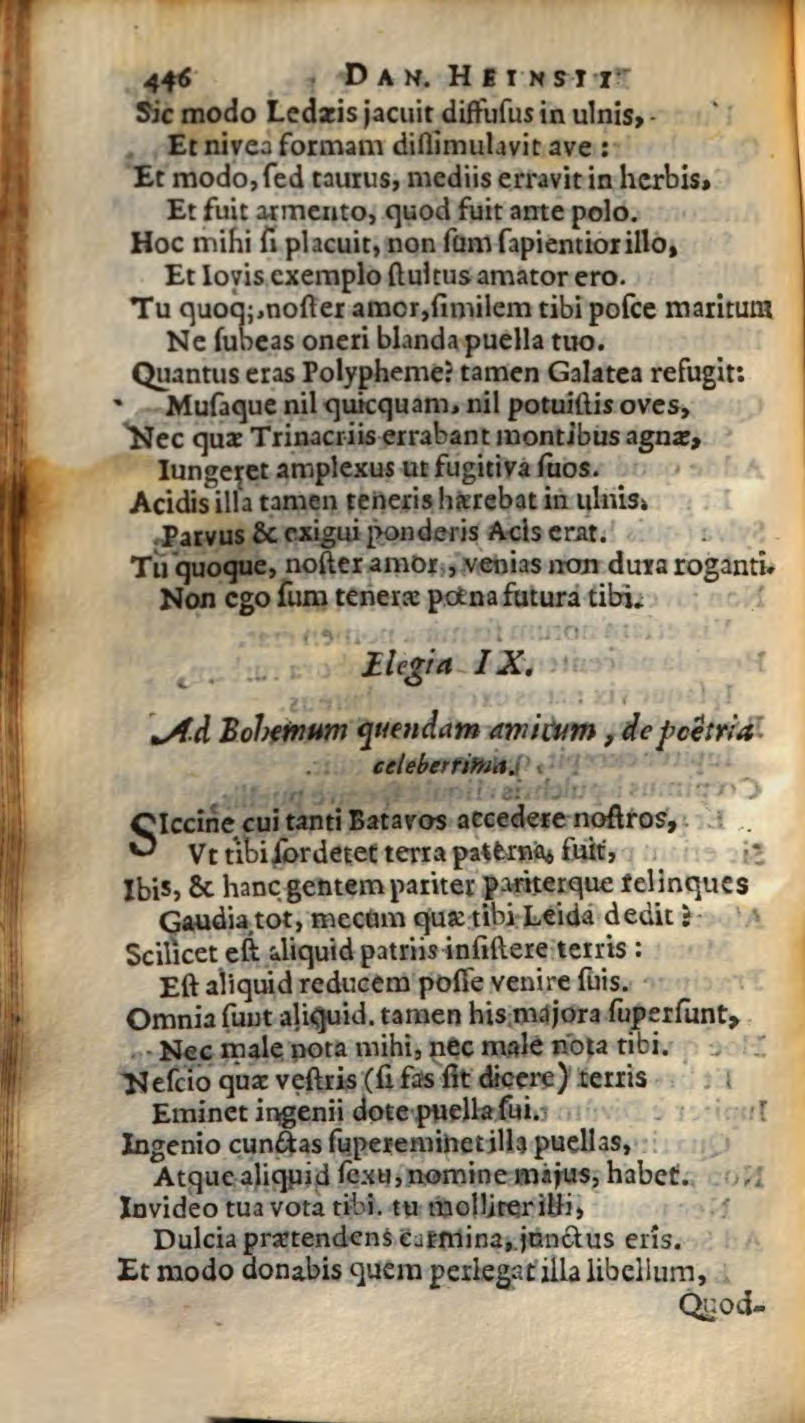 446 DAN. HEINSII
Sic modo Ledæis jacuit diffuſus in ulnis,
Et nivea formam diſſimulavit ave :
Et modo, ſed taurus, mediis erravit in herbis,
Et fuit armento, quod fuit ante polo.
Hoc mihi ſi placuit, non ſum ſapientior illo,
Et Iovis exemplo ſtultus amator ero.
Tu quoq;, noſter amor, ſimilem tibi poſce maritum
Ne ſubeas oneri blanda puella tuo.
Quantus eras Polypheme? tamen Galatea refugit:
Muſaque nil quicquam, nil potuiſtis oves,
Nec quæ Trinacriis errabant montibus agnæ,
Iungeret amplexus ut fugitiva ſuos.
Acidis illa tamen teneris hærebat in ulnis,
Parvus & exigui ponderis Acis erat.
Tu quoque, noſter amor, venias non dura roganti.
Non ego ſum teneræ pœna futura tibi.
Elegia IX.
Ad Bohemum quendam amicum, de poëtria
celeberrima.
SIccine cui tanti Batavos accedere noſtros,
Vt tibi ſorderet terra paterna, fuit,
Ibis, & hanc gentem pariter pariterque relinques
Gaudia tot, mecum quæ tibi Leida dedit ?
Scilicet eſt aliquid patriis inſiſtere terris :
Eſt aliquid reducem poſſe venire ſuis.
Omnia ſunt aliquid. tamen his majora ſuperſunt,
Nec male nota mihi, nec male nota tibi.
Neſcio quæ veſtris (ſi fas ſit dicere) terris
Eminet ingenii dote puella ſui.
Ingenio cunctas ſupereminet illa puellas,
Atque aliquid ſexu, nomine majus, habet.
Invideo tua vota tibi. tu molliter illi,
Dulcia prætendens carmina, junctus eris.
Et modo donabis quem perlegat illa libellum,
Quod-